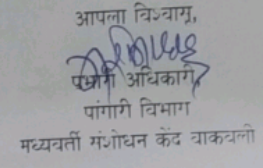 आपला विश्वासू,
प्रभारी अधिकारी
पांगारी विभाग
मध्यवर्ती संशोधन केंद्र वाकवली